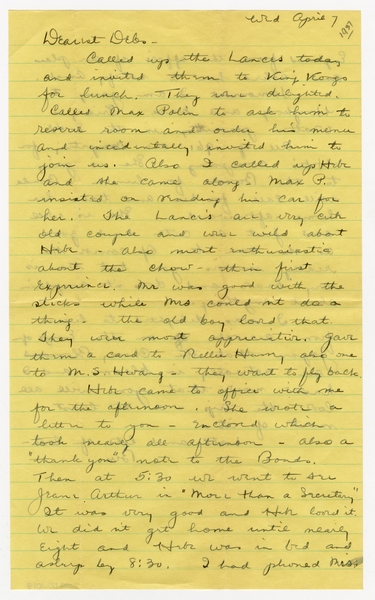 Wed April 7
1937
Dearest Debs-
Called up the Lances today
and invited them to King Kongs
for lunch. They were delighted.
Called Max Polin to ask him to
reserve room and order his menu
and incidentally invited him to
join us. Also I called up Hebe
and she came along. Max P.
insisted on sending his car for
her. The Lances are very cute
old couple and were wild about
Hebe - also most enthusiastic
about the chow - their first
experience. Mr was good with the
sticks while Mrs couldn't do a
thing - the old boy loved that
They were most appreciative. Gave
them a card to Nellie also one
to M.S. Hwang - they want to fly back.
Hebe came to office with me
for the afternoon. She wrote a
letter to you - enclosed which
took nearly all afternoon - also a
"thank you" note to the Bonds.
Then at 5:30 we went to see
Jean Arthur in "More Than a Secretary"
It was very good and Hebe loved it.
We didn't get home until nearly
eight and Hebe was in bed and
asleep by 8:30. I had phoned Miss